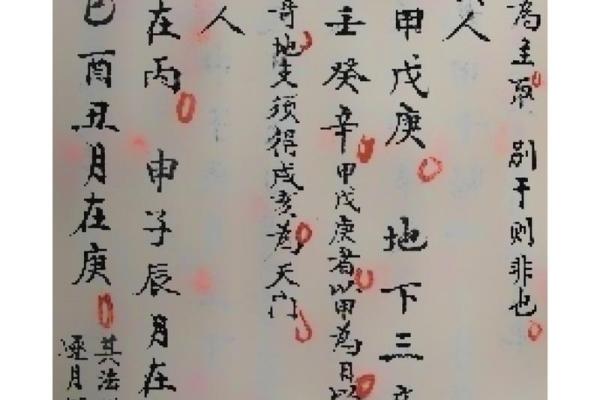 為主取 別干則非也
人
甲戊庚 地下三
壬癸辛甲戊庚者以甲為日以
奇地支須得戌亥為天门
人
在丙 申子辰月在
巳酉丑月在庚
其法
月